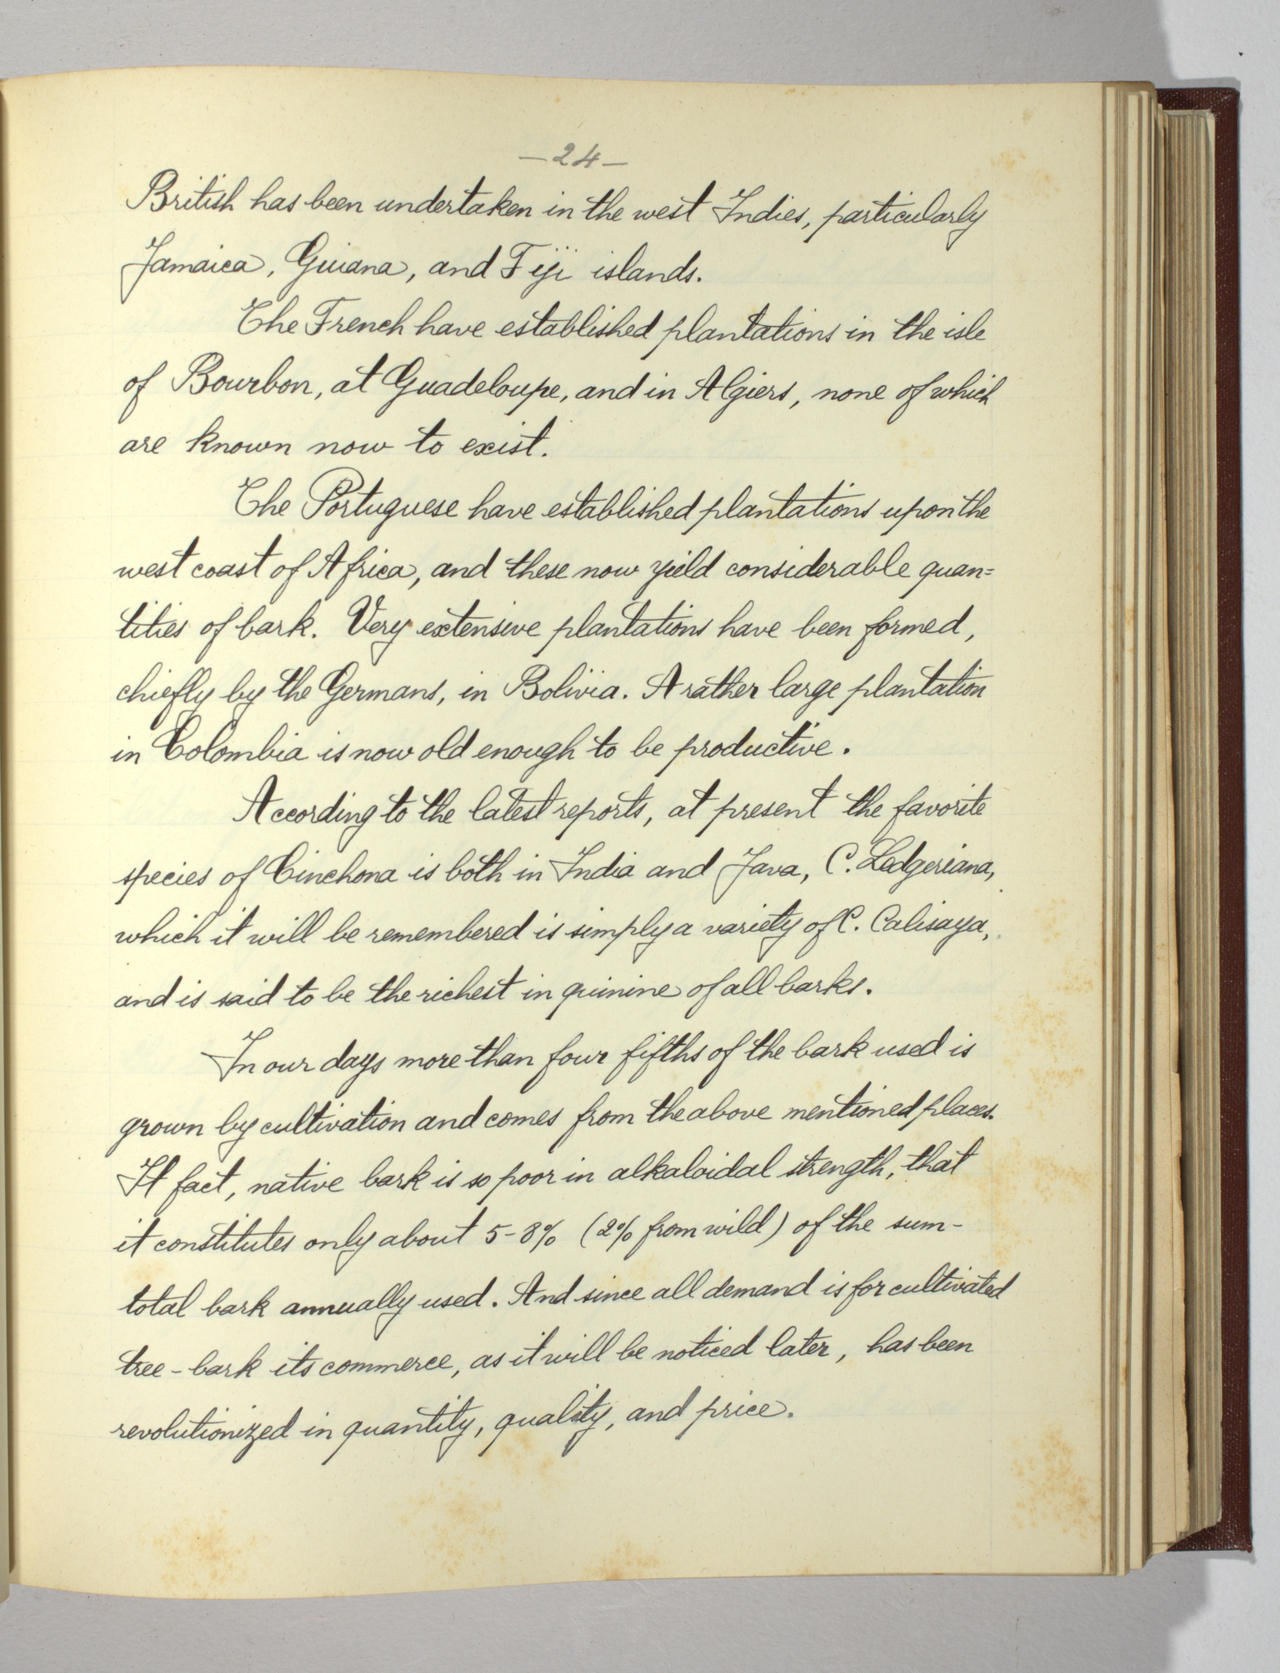 —24—
British has been undertaken in the west Indies, particularly
Jamaica, Guiana, and Fiji islands.
The French have established plantations in the isle
of Bourbon, at Guadeloupe, and in Algiers, none of which
are known now to exist.
The Portuguese have established plantations upon the
west coast of Africa, and these now yield considerable quan=
tities of bark. Very extensive plantations have been formed,
chiefly by the Germans, in Bolivia. A rather large plantation
in Colombia is now old enough to be productive.
According to the latest reports, at present the favorite
species of Cinchona is both in India and Java, C. Ledgeriana,
which it will be remembered is simply a variety of C. Calisaya,
and is said to be the richest in quinine of all barks.
In our days more than four fifths of the bark used is
grown by cultivation and comes from the above mentioned places.
It fact, native bark is so poor in alkaloidal strength, that
it constitutes only about 5-8% (2% from wild) of the sum-
total bark annually used. And since all demand is for cultivated
tree-bark its commerce, as it will be noticed later, has been
revolutionized in quantity, quality, and price.